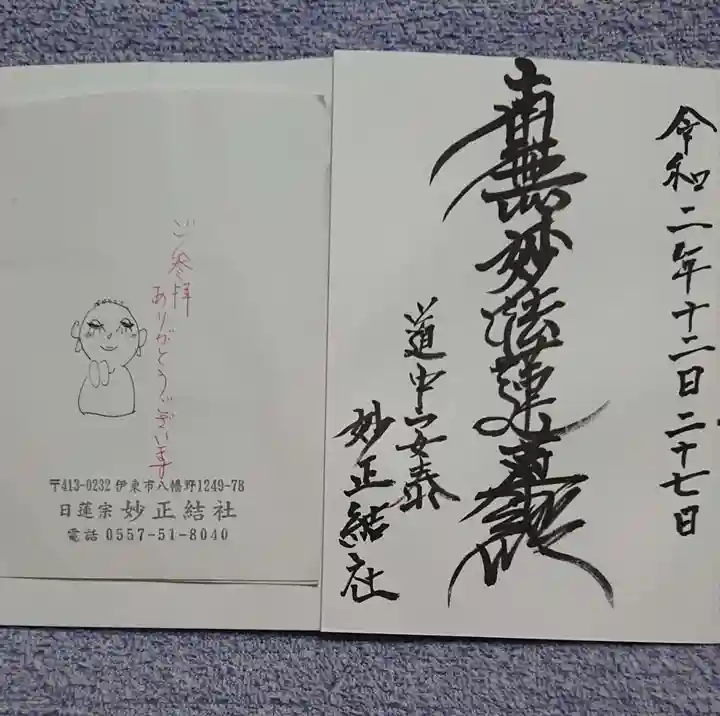 令和二年十二月二十七日
南無妙法蓮華経
道中安泰
妙正結社
ご参拝
ありがとうございます
〒413-0232 伊東市八幡野1249-78
日蓮宗 妙正結社
電話 0557-51-8040